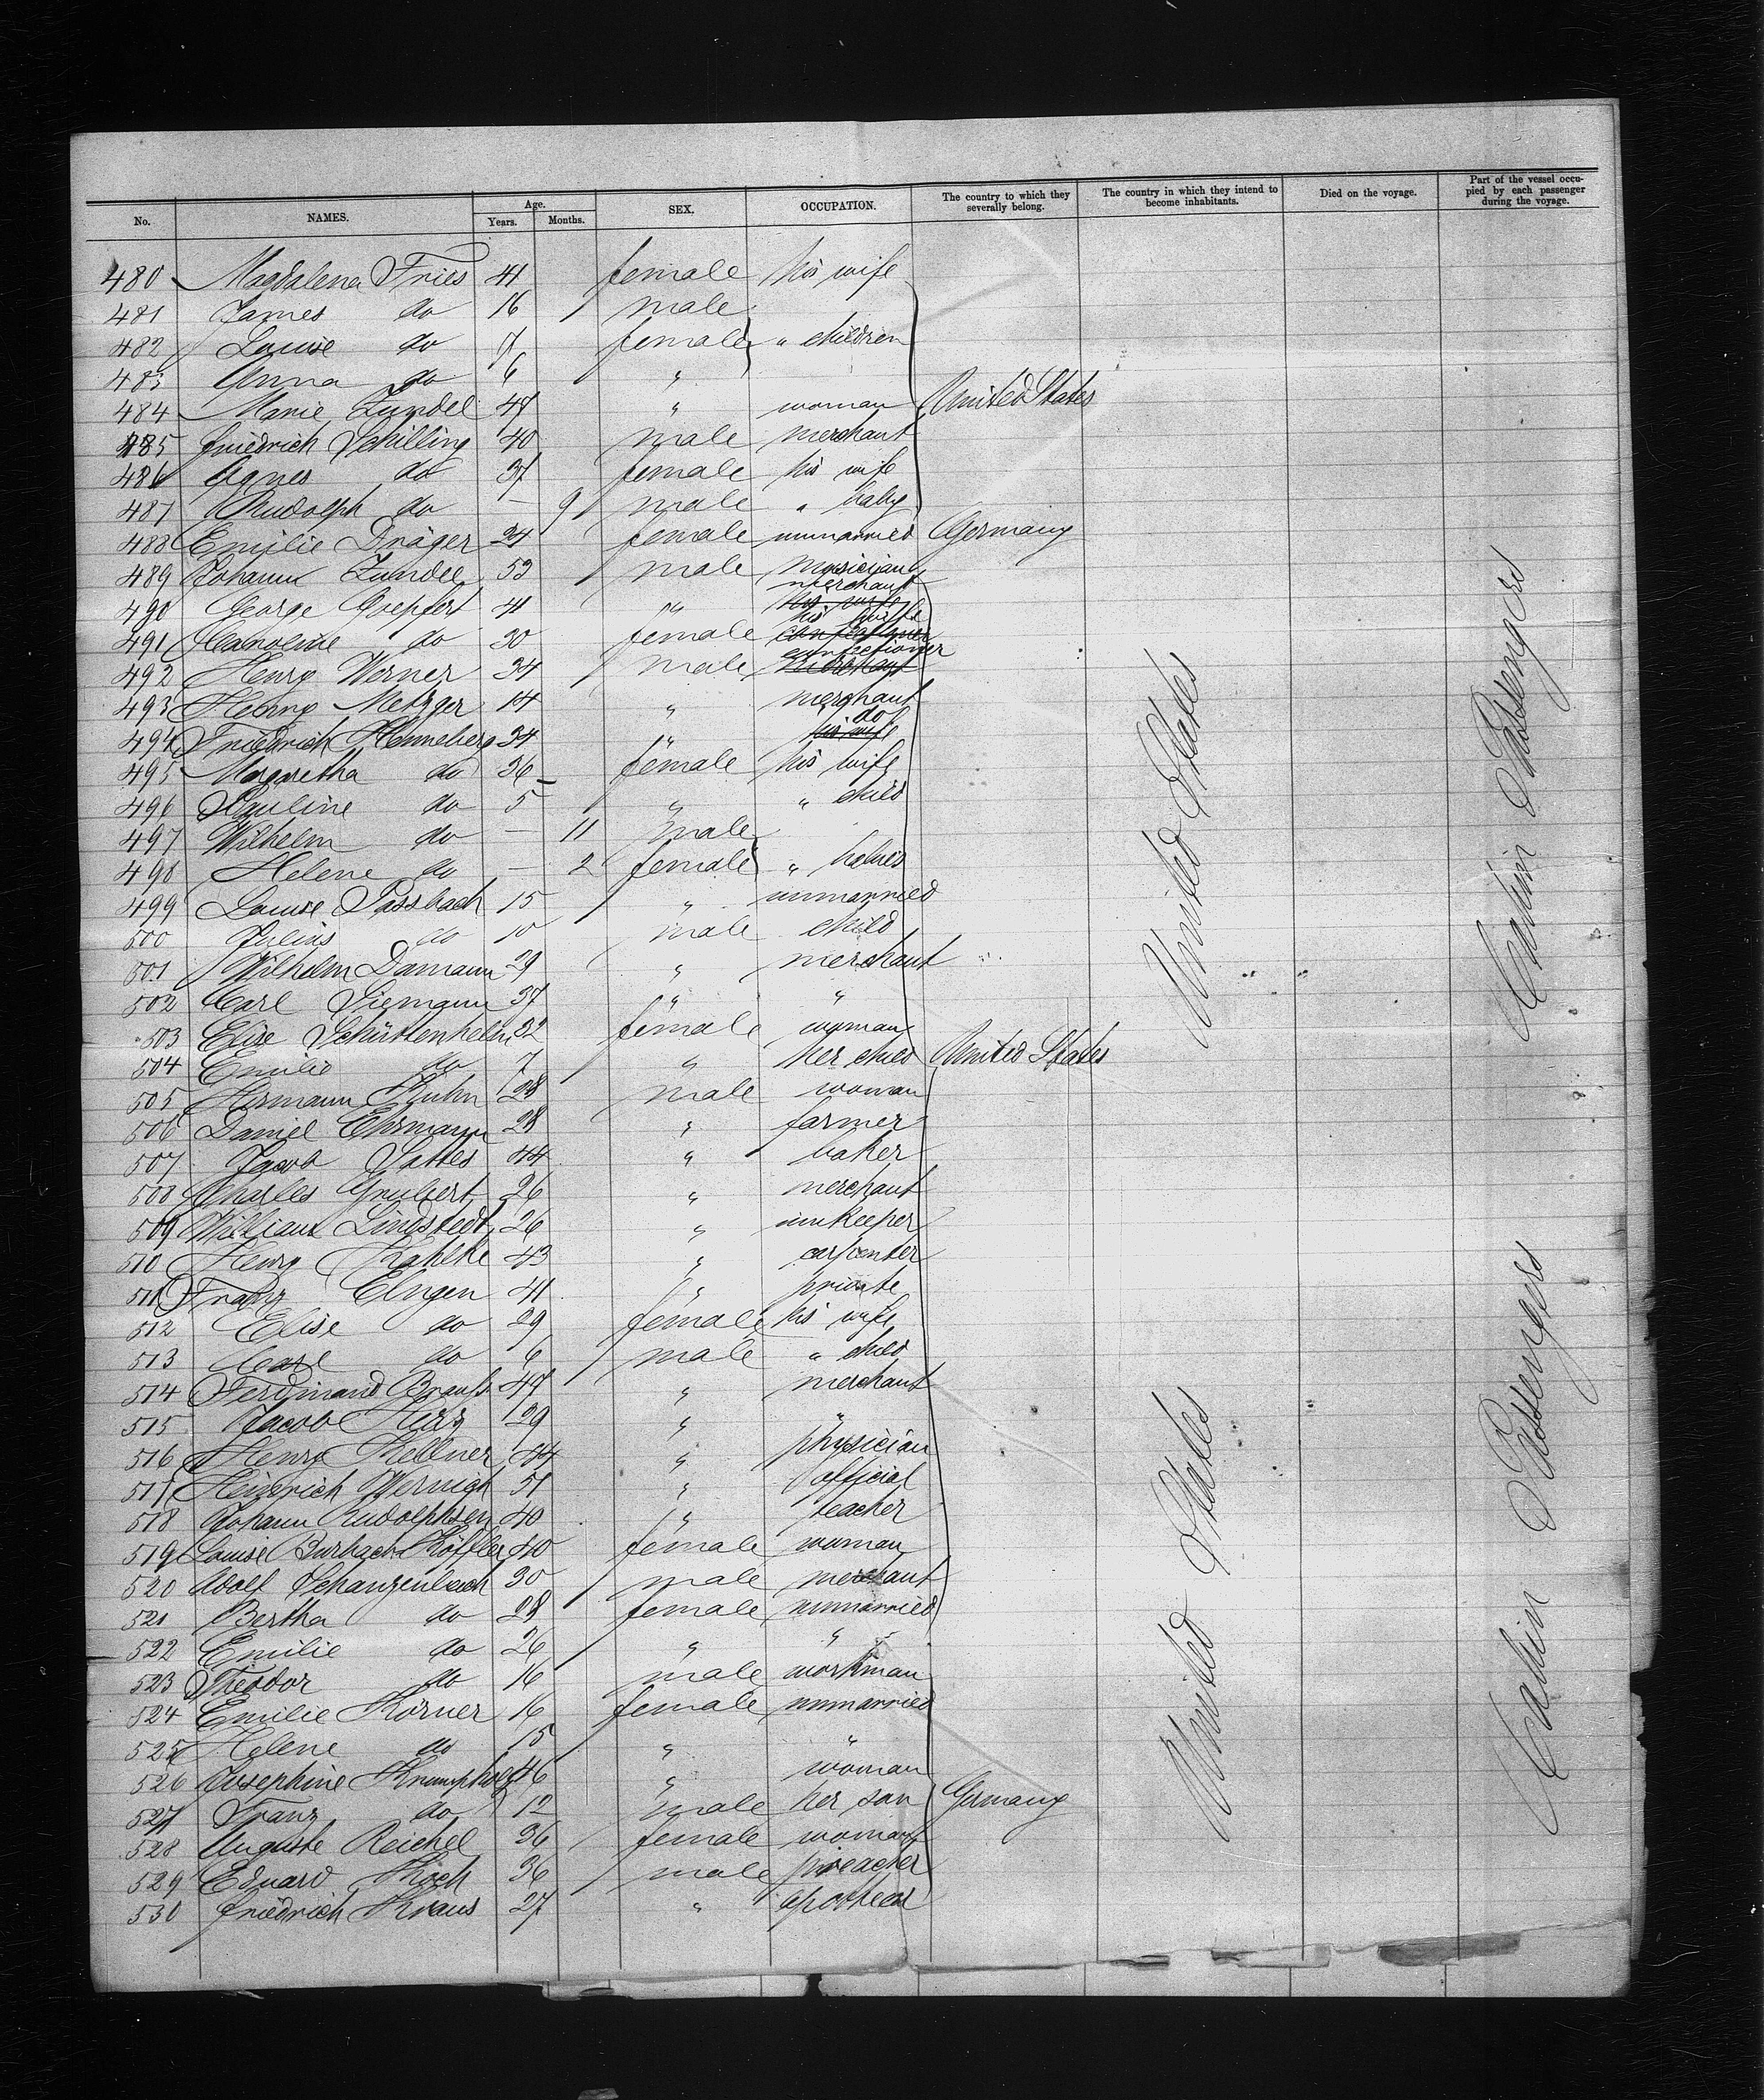 No. NAMES. Age. Years. Months. SEX. OCCUPATION. The country to which they severally belong. The country in which they intend to become inhabitants. Died on the voyage. Part of the vessel occupied by each passenger during the voyage.
480 Magdalena Fries 41 female his wife
481 James do 16 male
482 Louise do 17 female " children
483 Anna do 6 "
484 Marie Zundel 47 " woman United States
485 Friedrich Schilling 40 male merchant
486 Agnes do 37 female his wife
487 Rudolph do — 9 male " baby
488 Emilie Dräger 24 female unmarried Germany
489 Johann Zundel 53 male musician
490 George Goepfert 41 " merchant his wife
491 Caroline do 30 female his wife confectioner
492 Henry Werner 34 male confectioner merchant
493 Henry Metzger 14 " merchant
494 Friedrich Henneberg 34 " do his wife
495 Margaretha do 26 female his wife
496 Pauline do 5 " " child
497 Wilhelm do — 11 male
498 Helene do — 2 female " babies
499 Louise Passbach 15 " unmarried
500 Julius do 10 male child
501 Wilhelm Damann 29 " merchant
502 Carl Siemann 37 " "
503 Elise Schüttenhelm 32 female woman
504 Emilie do 7 " her child United States
505 Hermann Kuhn 28 male woman
506 Daniel Ehrmann 28 " farmer
507 Jacob Sattes 44 " baker
508 Charles Grubert 26 " merchant
509 William Lindstedt 26 " innkeeper
510 Henry Kahlke 43 " carpenter
511 Franz Elngen 41 " private
512 Elise do 29 female his wife
513 Carl do 6 male " child
514 Ferdinand Brauß 47 " merchant
515 Jacob Hirz 29 " "
516 Henry Kellner 44 " physician
517 Heinrich Wernigk 51 " official
518 Johann Rudolphsen 40 " teacher
519 Louise Burbach Köffler 40 female woman
520 Adolf Schanzenbach 30 male merchant
521 Bertha do 28 female unmarried
522 Emilie do 26 " "
523 Theodor do 16 male workman
524 Emilie Körner 16 female unmarried
525 Helene do 15 " "
526 Josephine Krumpholz 46 " woman
527 Franz do 12 male her son Germany
528 Auguste Reichel 36 female woman
529 Eduard Koch 36 male preacher
530 Friedrich Kraus 27 "
United States
United States
Cabin Passengers
Cabin Passengers